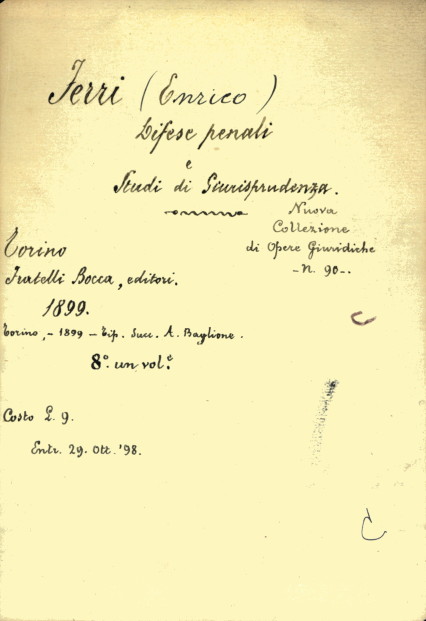 Ferri (Enrico)
Difese penali
e
Studi di Giurisprudenza.
Nuova
Collezione
di Opere Giuridiche
-N. 90-.
Torino
Fratelli Bocca, editori.
1899.
Torino, - 1899 - Tip. Succ. A. Baglione.
8º. un vol.e
Costo L. 9.
Entr. 29. Ott. '98.